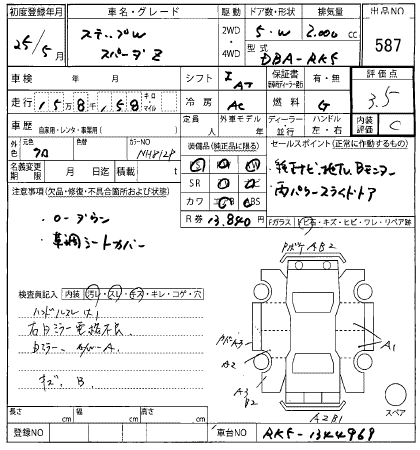 初度登録年月
車名・グレード
駆動
ドア数・形状
排気量
出品NO
25/5月
ステップW
スパーダZ
2WD
4WD
5・W
2,000 cc
587
型式
DBA-RK5
車検 年 月
シフト
AT
保証書
有・無
評価点
3.5
走行 15万8千158 キロ・マイル
冷房
AC
燃料
G
車歴 自家用・レンタ・事業用( )
定員 人
外車モデル 年
ディーラー・並行
ハンドル 左・右
内装評価
C
外色
元色
クロ
色替
カラーNO
NH812P
装備品(純正品に限る)
セールスポイント(正常に作動するもの)
名義変更期限 月 日
積載 t
SR
カワ
純正ナビ・地デジ、Bモニター
両パワースライドドア
注意事項(欠品・修復・不具合箇所および状態)
R券 13,840 円
・ローダウン
・革調シートカバー
Fガラス トビ石・キズ・ヒビ・ワレ・リペア跡
検査員記入 内装 汚レ・スレ・キズ・キレ・コゲ・穴
ハンドルスレ
右ドミラー電格不良
キズ B
AB2
A3
A2
A3
B2
A1
A2B1
スペア
長さ cm
幅 cm
高さ cm
登録NO
車台NO
RK5-1344969